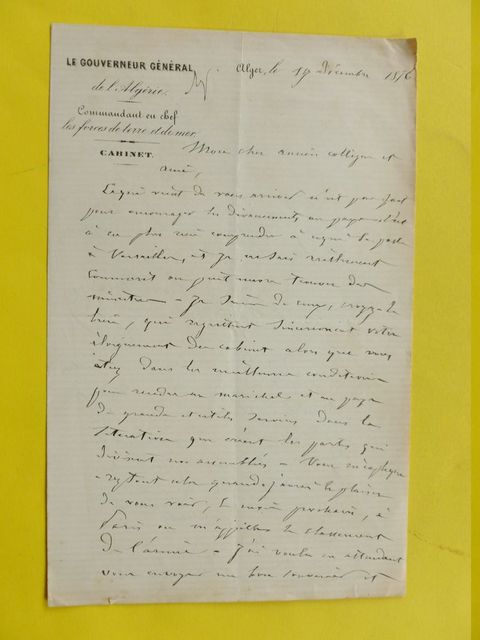 LE GOUVERNEUR GÉNÉRAL
de l'Algérie.
Commandant en chef
les forces de terre et de mer
CABINET.
Alger, le 19 Décembre 1876
Mon cher ancien collègue et
ami,
Ce qui vient de vous arriver n'est pas fait
pour encourager les dévouements au pays c'est
à ne plus rien comprendre à ce qui se passe
à Versailles, et je ne sais réellement
comment on peut encore trouver des
ministres - Je suis de ceux, croyez le
bien, qui regrettent sincèrement votre
éloignement du cabinet alors que vous
étiez dans les meilleures conditions
pour rendre au maréchal et au pays
de grands et utiles services dans la
situation que créent les partis qui
divisent nos assemblées - Vous
quand j'aurai le plaisir
de vous voir, le mois prochain, à
Paris où m'appelle le classement
de l'armée - J'ai voulu en attendant
vous envoyer un bon souvenir et